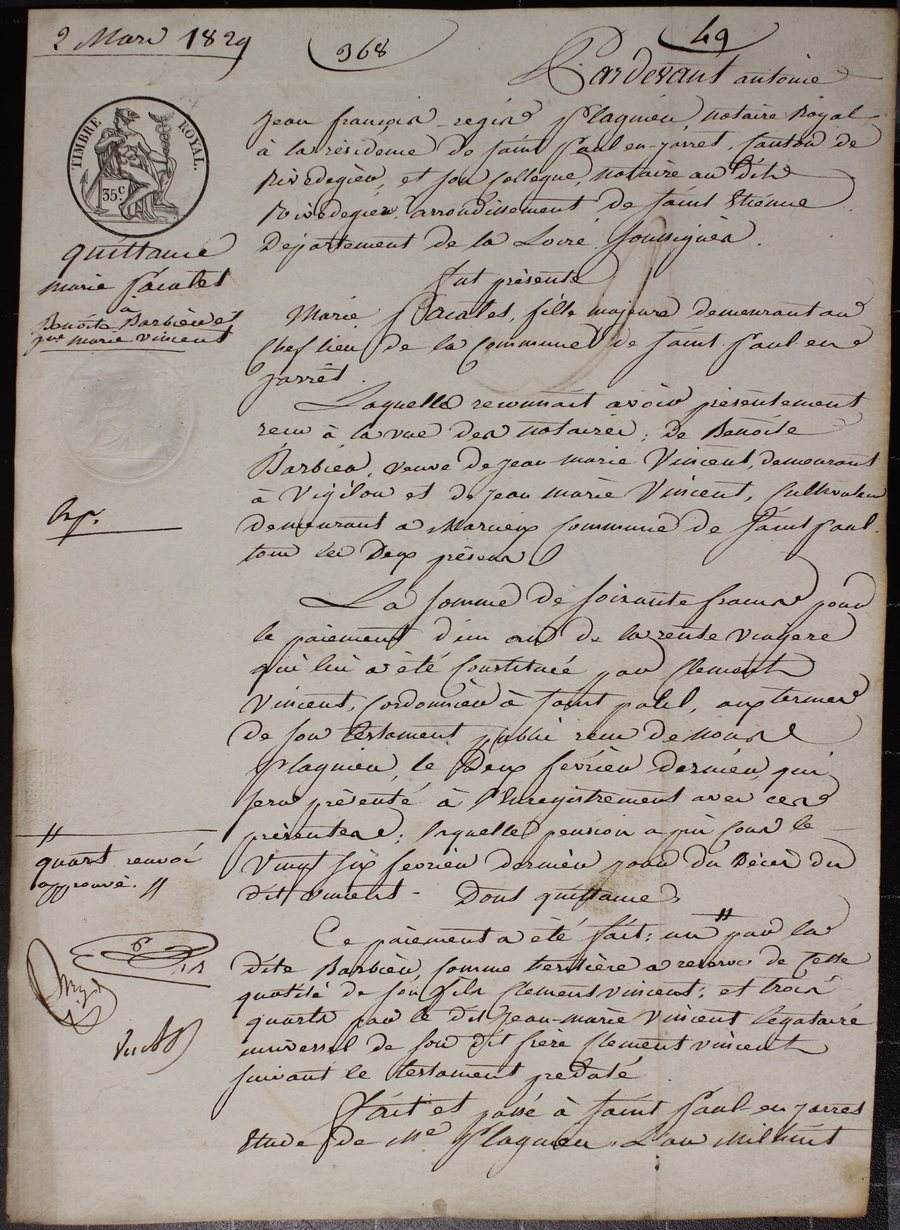 2 Mars 1829
368
49
Pardevant antoine
Jean françois regis Plagnieu notaire Royal
à la résidence de Saint Paul-en-jarret, Canton de
Rivedegier, et son Collegue, notaire au dit
Rivedegier, arrondissement de Saint Etienne
Departement de la Loire Soussignés.
TIMBRE ROYAL.
35 c.
quittance
marie Pacalet
à
Benoite Barbier et
jn marie vincent
fut présente
Marie Pacalet, fille majeure demeurant au
Chef lieu de la Commune de Saint Paul en
jarret.
Laquelle reconnait avoir présentement
recu à la vue des notaires, de Benoite
Barbier, veuve de Jean marie Vincent, demeurant
à Vigilon et de Jean marie Vincent, Cultivateur
demeurant a Commune de Saint Paul
tous les Deux présens
La somme de Soixante francs pour
le paiement d'un an de la rente viagere
qui lui a été Constituée par Clement
Vincent, Cordonnier à Saint paul, aux termes
de son testament public recu de nous
Plagnieu, le Deux février dernier, qui
sera présenté à l'Enregistrement avec ces
présentes; laquelle pension a pris cour le
Vingt six fevrier dernier jour du Décès du
dit vincent - Dont quittance.
Ce paiement a été fait: un # par la
dite Barbier, comme heritière a reserve de Cette
quotité de son fils Clement vincent; et trois
quarts par le dit Jean-marie Vincent légataire
universel de son dit frère Clement vincent
suivant le testament predaté
Fait et passé à Saint Paul-en-jarret
Etude de Me Plagnieu L'an Mil huit
#
quart renvoi
approuvé. #